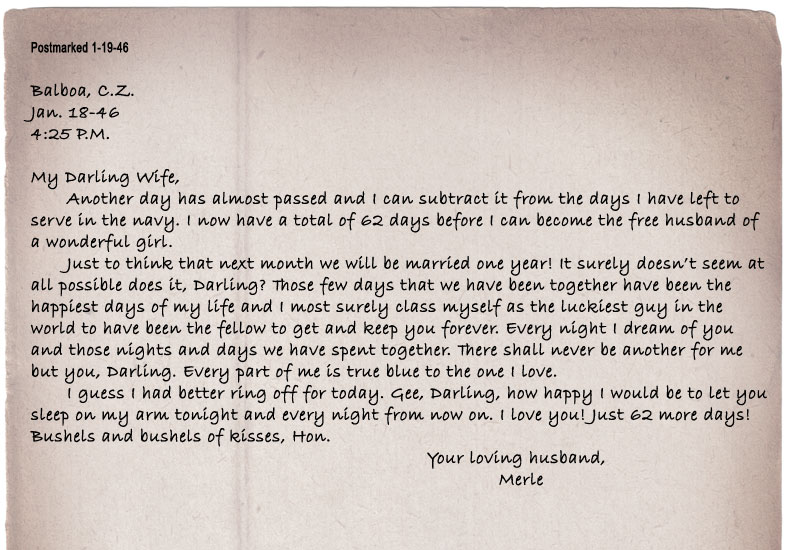 Postmarked 1-19-46
Balboa, C.Z.
Jan. 18-46
4:25 P.M.
My Darling Wife,
Another day has almost passed and I can subtract it from the days I have left to
serve in the navy. I now have a total of 62 days before I can become the free husband of
a wonderful girl.
Just to think that next month we will be married one year! It surely doesn't seem at
all possible does it, Darling? Those few days that we have been together have been the
happiest days of my life and I most surely class myself as the luckiest guy in the
world to have been the fellow to get and keep you forever. Every night I dream of you
and those nights and days we have spent together. There shall never be another for me
but you, Darling. Every part of me is true blue to the one I love.
I guess I had better ring off for today. Gee, Darling, how happy I would be to let you
sleep on my arm tonight and every night from now on. I love you! Just 62 more days!
Bushels and bushels of kisses, Hon.
Your loving husband,
Merle